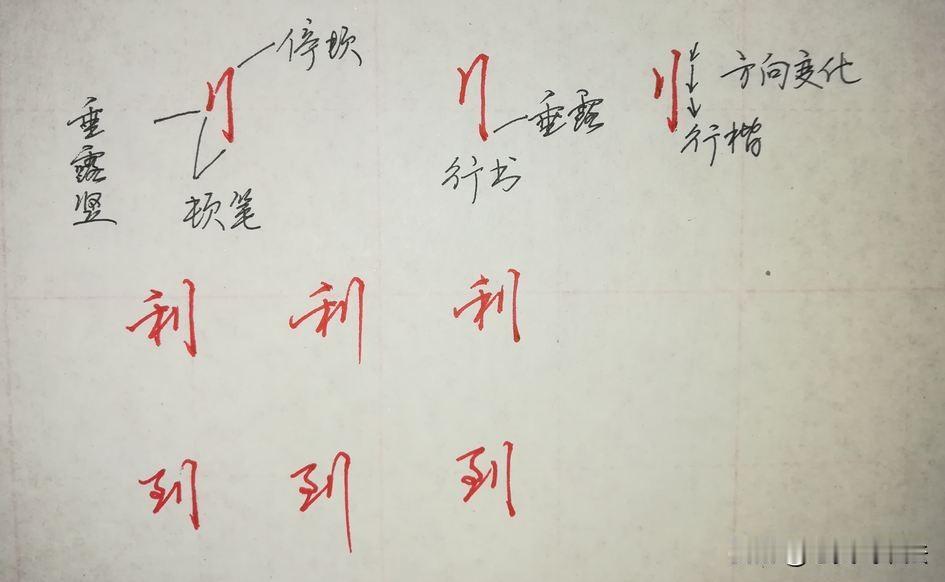 停顿
垂露竖
顿笔
刂
垂露
行书
刂
方向变化
行楷
利 利 利
到 到 到